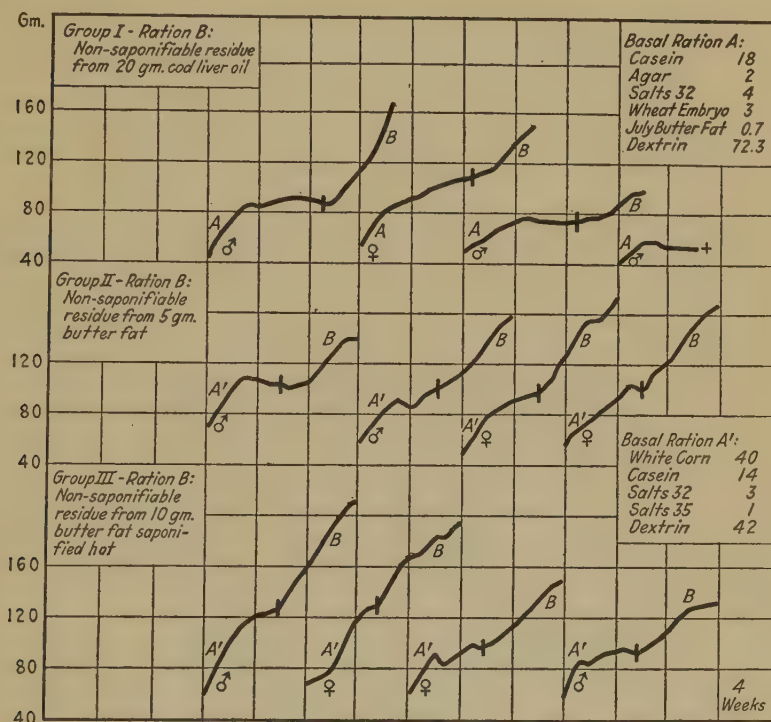 Gm.
Group I - Ration B:
Non-saponifiable residue
from 20 gm. cod liver oil
Basal Ration A:
Casein 18
Agar 2
Salts 32 4
Wheat Embryo 3
July Butter Fat 0.7
Dextrin 72.3
160
120
80
40
A ♂ B
A ♀ B
A ♂ B
A ♂ +
Group II - Ration B:
Non-saponifiable
residue from 5 gm.
butter fat
120
80
40
A' ♂ B
A' ♂ B
A' ♀ B
A' ♀ B
Basal Ration A':
White Corn 40
Casein 14
Salts 32 3
Salts 35 1
Dextrin 42
Group III - Ration B:
Non-saponifiable
residue from 10 gm.
butter fat saponi-
fied hot
160
120
80
40
A' ♂ B
A' ♀ B
A' ♀ B
A' ♂ B
4
Weeks